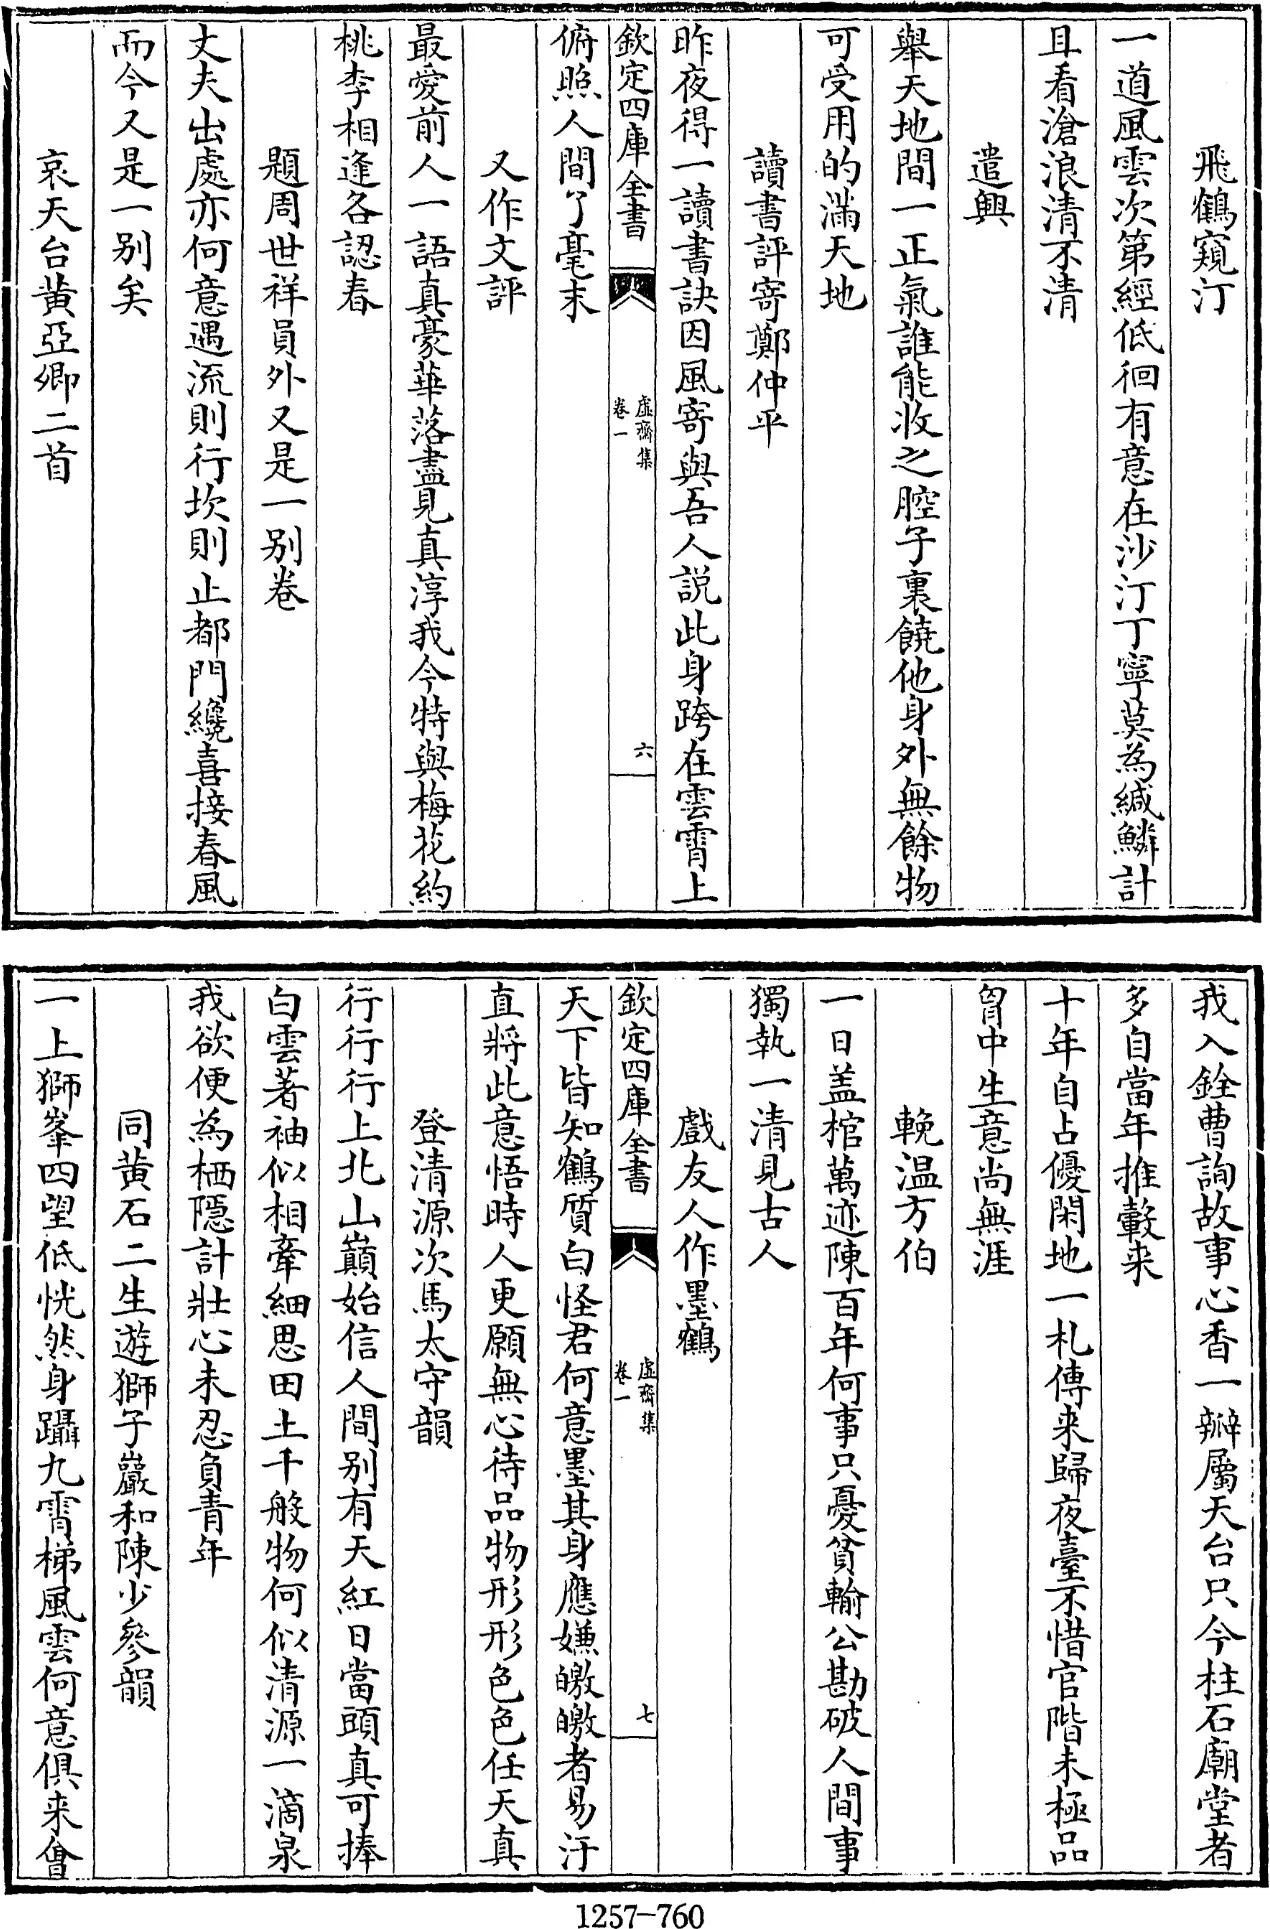 飛鶴窺汀
一道風雲次第經低徊有意在沙汀丁寧莫為緘鱗計
且看滄浪清不清
遣興
舉天地間一正氣誰能收之腔子裏饒他身外無餘物
可受用的滿天地
讀書評寄鄭仲平
昨夜得一讀書訣因風寄與吾人說此身跨在雲霄上
欽定四庫全書
虛齋集
卷一
六
俯照人間了毫末
又作文評
最愛前人一語真豪華落盡見真淳我今特與梅花約
桃李相逢各認春
題周世祥員外又是一别卷
丈夫出處亦何意遇流則行坎則止都門纔喜接春風
而今又是一别矣
哀天台黄亞卿二首
我入銓曹詢故事心香一瓣屬天台只今柱石廟堂者
多自當年推轂来
十年自占優閑地一札傳来歸夜臺不惜官階未極品
胷中生意尚無涯
輓温方伯
一日盖棺萬迹陳百年何事只憂貧輸公勘破人間事
獨執一清見古人
戲友人作墨鶴
天下皆知鶴質白怪君何意墨其身應嫌皦皦者易汙
欽定四庫全書
虛齋集
卷一
七
直將此意悟時人更願無心待品物形形色色任天真
登清源次馬太守韻
行行行上北山巔始信人間别有天紅日當頭真可捧
白雲著袖似相牽細思田土千般物何似清源一滴泉
我欲便為栖隱計壯心未忍負青年
同黄石二生遊獅子巖和陳少參韻
一上獅峯四望低恍然身躡九霄梯風雲何意俱来會
1257-760